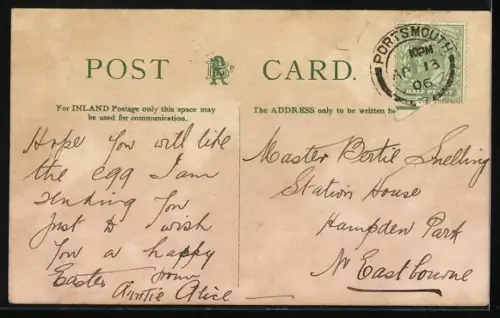 POST CARD.
For INLAND Postage only this space may
be used for communication.
The ADDRESS only to be written he
PORTSMOUTH
10PM
AP 13
06
HALF PENNY
Hope you will like
the egg I am
sending you
Just to wish
you a happy
Easter from
Auntie Alice
Master Bertie Snelling
Station House
Hampden Park
Nr Eastbourne